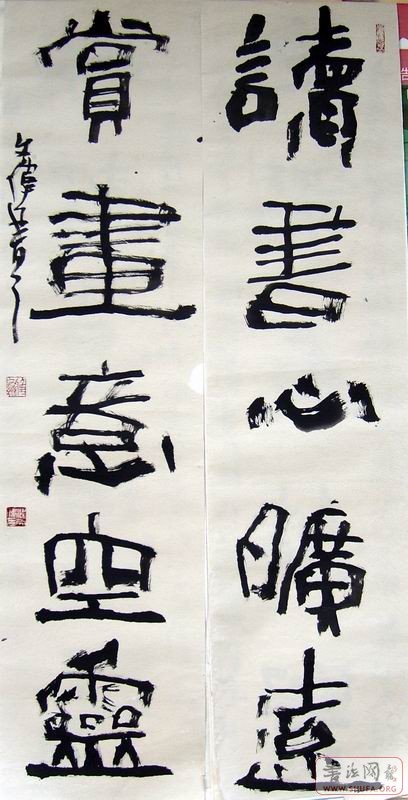 讀書心曠遠
賞畫意空靈
書法网
WWW.SHUFA.ORG